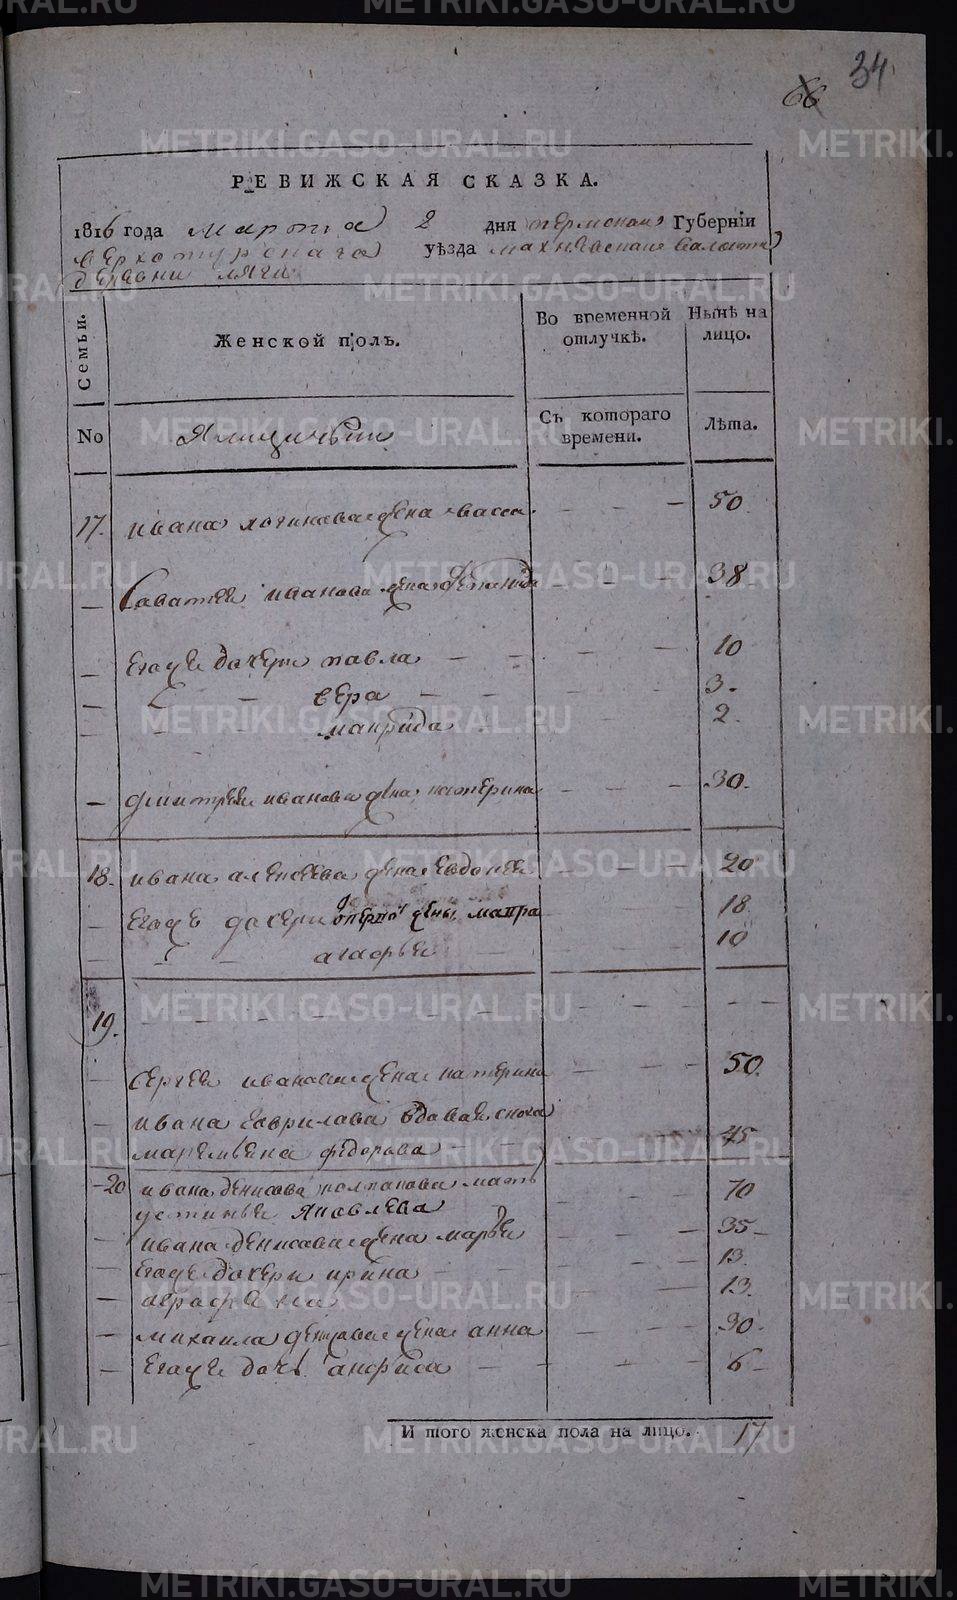 34
66
РЕВИЖСКАЯ СКАЗКА.
1816 года марта 2 дня пермской Губерніи
верхотурскага уѣзда махневской валости
деревни мяги
Семьи.
Женской полъ.
Во временной отлучкѣ.
Нынѣ на лицо.
No
Ямщичьи
Съ котораго времени.
Лѣта.
17. ивана логинава жена васса. 50
Саватеи иванова жена 38
— Егоже дочери павла 10
— вера 3.
— манрида 2.
— дмитреи иванова жена катерина 30.
18. ивана алексеева жена евдокея 20
— Егожъ дочери 1 жены мапра 18
— агафьеи 10
19.
— сергеи иванова жена катерина 50.
— ивана гаврилава вдавая сноха
маремьяна федорова 45
-20 ивана денисова полпанова мать 70
устинья Яковлева
— ивана денисова жена марьеи 35
— Егоже дочери ирина 13.
— аграфена 13.
— михаила жена анна 30
— Егоже дочь анфиса 6
И того женска пола на лицо. 17
METRIKI.GASO-URAL.RU